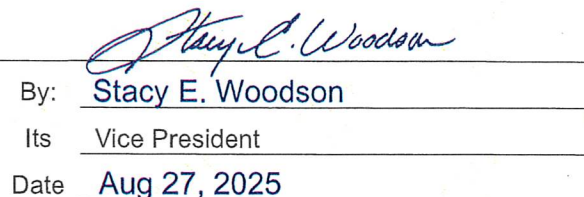 Stacy E. Woodson
By: Stacy E. Woodson
Its Vice President
Date Aug 27, 2025